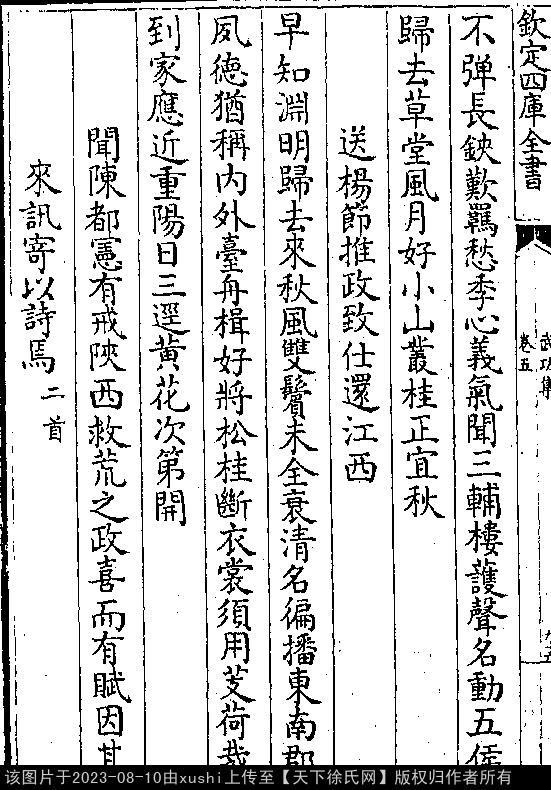 欽定四庫全書
武功集
卷五
不弹長鋏歎羈愁季心義氣聞三輔樓護聲名動五侯
歸去草堂風月好小山叢桂正宜秋
送楊節推政致仕還江西
早知淵明歸去來秋風雙鬢未全衰清名徧播東南郡
夙徳猶稱内外臺舟楫好將松桂斷衣裳須用芰荷裁
到家應近重陽日三逕黄花次第開
聞陳都憲有戒陜西救荒之政喜而有賦因其
來訊寄以詩焉二首
该图片于2023-08-10由xushi上传至【天下徐氏网】版权归作者所有